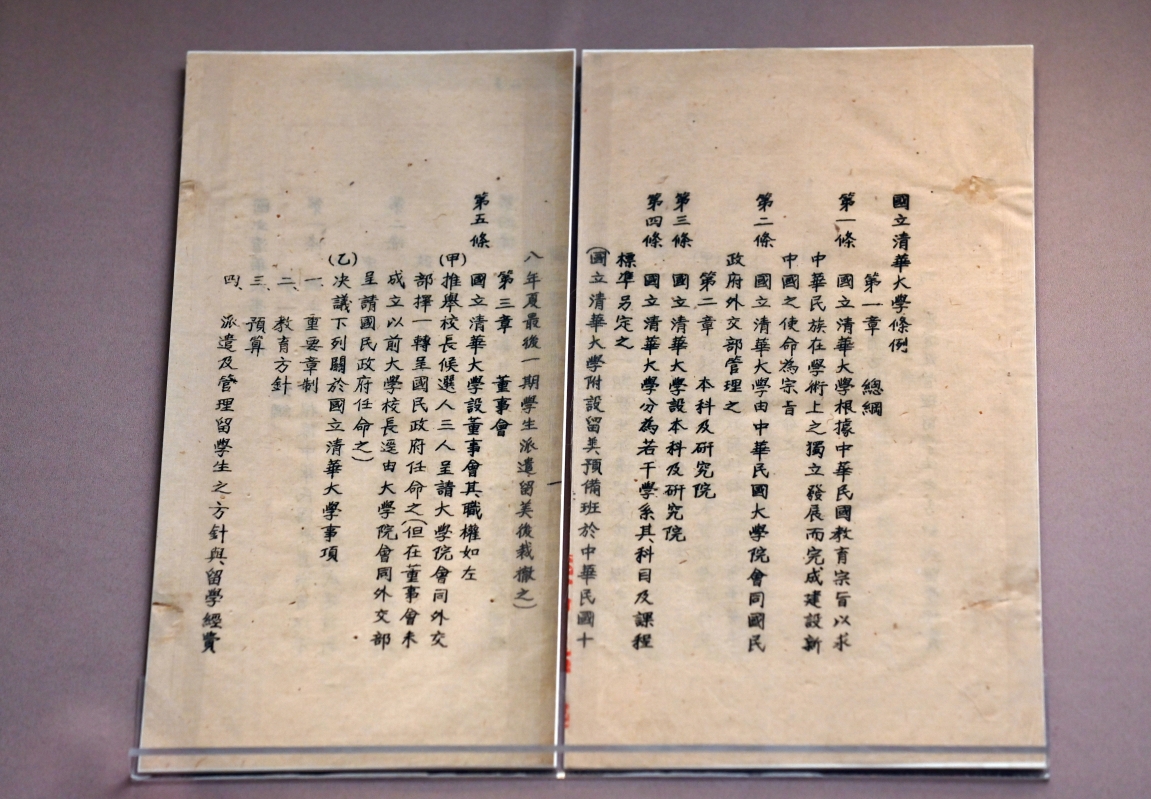 國立清華大學條例
第一章 總綱
第一條 國立清華大學根據中華民國教育宗旨以求
中華民族在學術上之獨立發展而完成建設新
中國之使命為宗旨
第二條 國立清華大學由中華民國大學院會同國民
政府外交部管理之
第二章 本科及研究院
第三條 國立清華大學設本科及研究院
第四條 國立清華大學分為若干學系其科目及課程
標準另定之
(國立清華大學附設留美預備班於中華民國十
八年夏最後一期學生派遣留美後裁撤之)
第三章 董事會
第五條 國立清華大學設董事會其職權如左
(甲)推舉校長候選人三人呈請大學院會同外交
部擇一轉呈國民政府任命之(但在董事會未
成立以前大學校長逕由大學院會同外交部
呈請國民政府任命之)
(乙)决議下列關於國立清華大學事項
一、重要章制
二、教育方針
三、預算
四、派遣及管理留學生之方針與留學經費